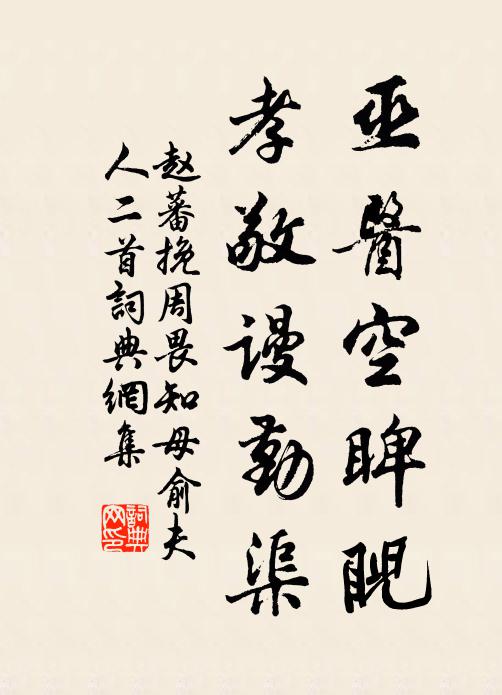 巫醫空睥睨
孝敬謾勤渠
赵蕃挽周畏知母俞夫
人二首詞典網集
詞典
网印